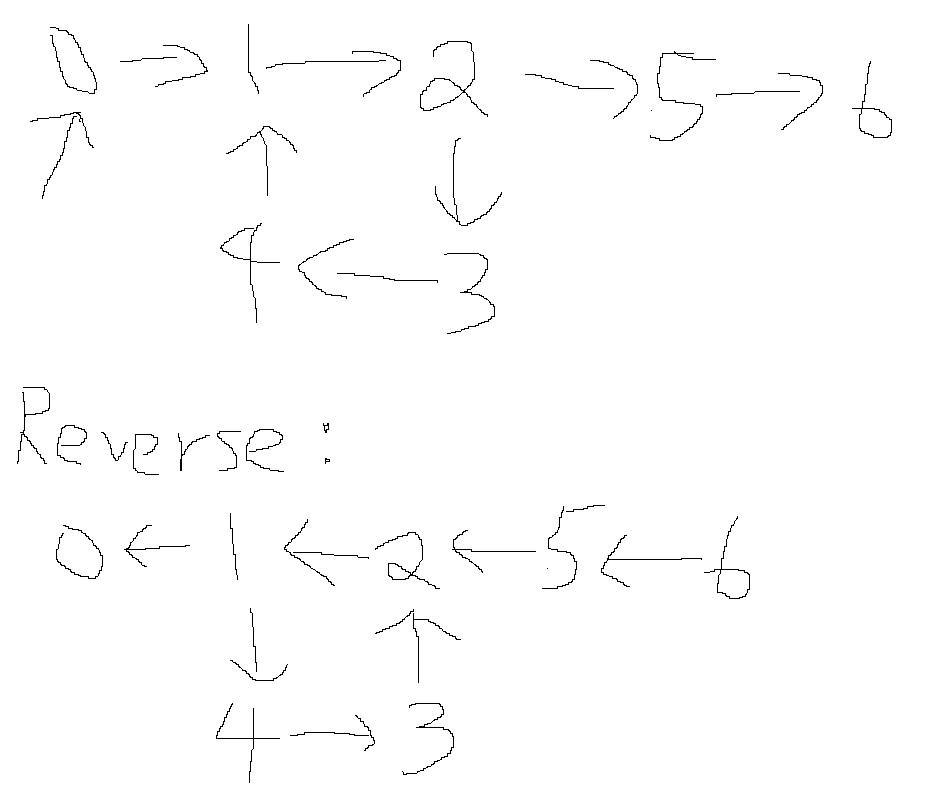 0 → 1 → 2 → 5 → 6
4 ← 3
Reverse:
0 ← 1 ← 2 ← 5 ← 6
4 → 3